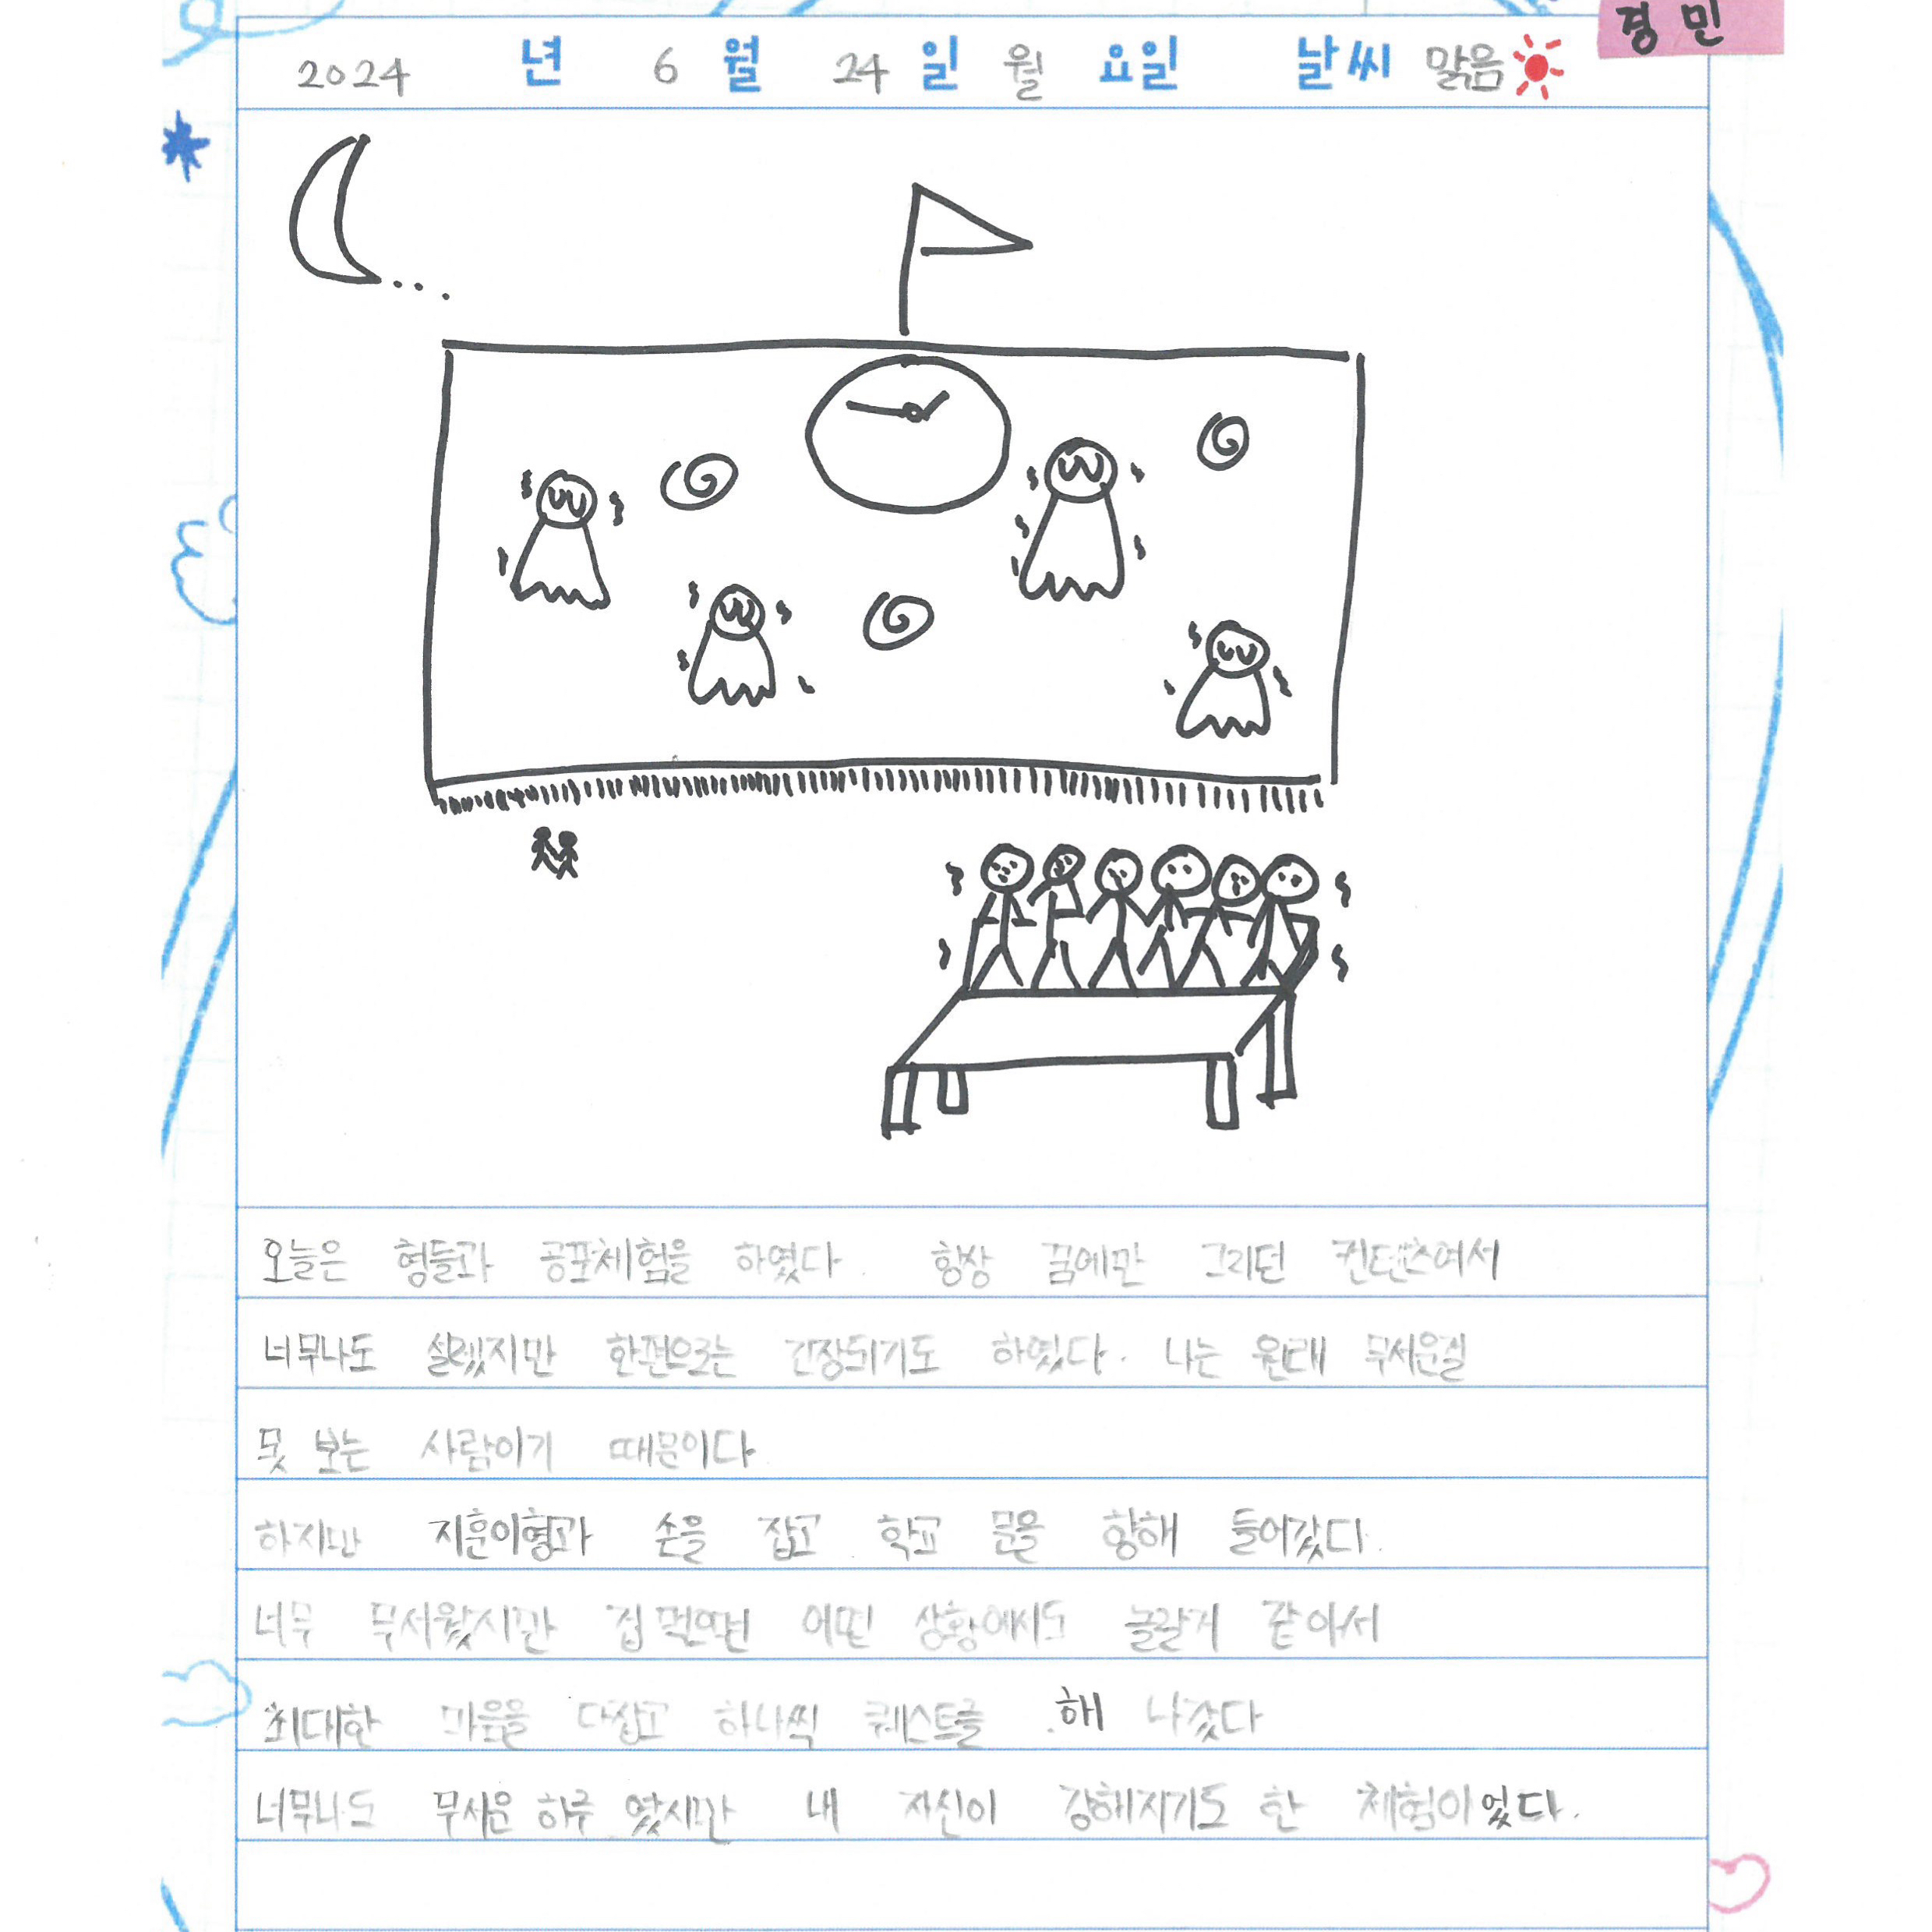 경민
2024 년 6 월 24 일 월 요일 날씨 맑음
오늘은 형들과 공포체험을 하였다. 항상 꿈에만 그리던 컨텐츠여서
너무나도 설렜지만 한편으로는 긴장되기도 하였다. 나는 원래 무서운걸
못 보는 사람이기 때문이다
하지만 지훈이형과 손을 잡고 학교 문을 향해 들어갔다.
너무 무서웠지만 겁먹으면 어떤 상황에서도 놀랄거 같아서
최대한 마음을 다잡고 하나씩 퀘스트를 해 나갔다
너무나도 무서운 하루 였지만 내 자신이 강해지기도 한 체험이었다.